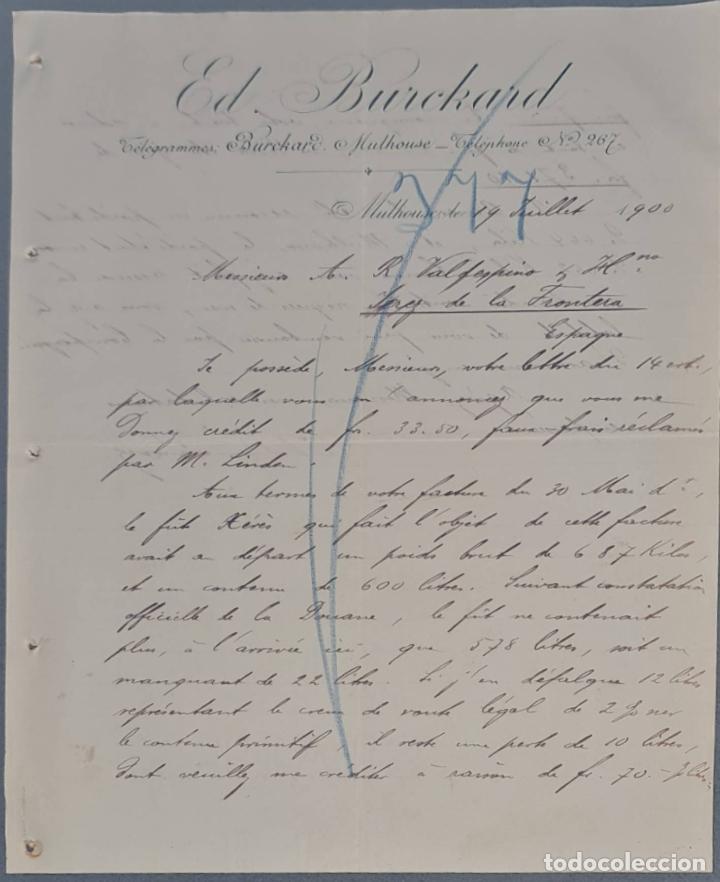 Ed. Burckard
Télégrammes: Burckard. Mulhouse – Téléphone No 267
347
Mulhouse, le 19 Juillet 1900
Messieurs A. R. Valdespino & Hno
Xerez de la Frontera
Espagne
Je possède, Messieurs, votre lettre du 14 crt.,
par laquelle vous m'annoncez que vous me
donnez crédit de fr. 33.50, faux-frais réclamés
par M. Linden.
Aux termes de votre facture du 30 Mai dr,
le fût Xérès qui fait l'objet de cette facture
avait au départ un poids brut de 687 Kilos,
et un contenu de 600 litres. Suivant constatation
officielle de la Douane, le fût ne contenait
plus, à l'arrivée ici, que 578 litres, soit un
manquant de 22 litres. Si j'en défalque 12 litres
représentant le creux de route légal de 2 % sur
le contenu primitif, il reste une perte de 10 litres,
dont veuillez me créditer à raison de fr. 70.–
todocoleccion